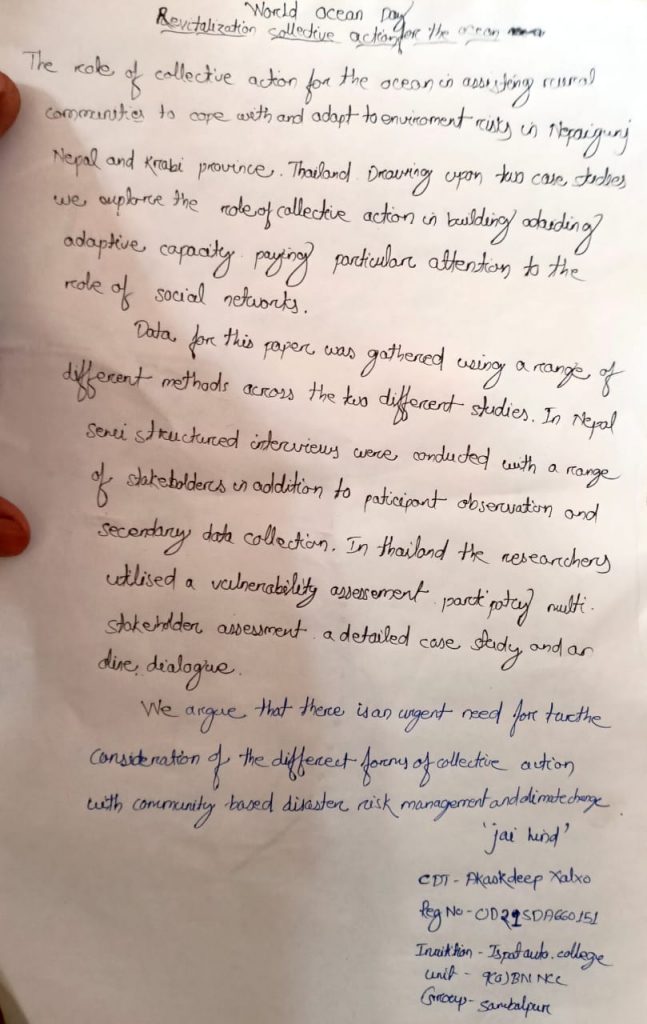 World Ocean Day
Revitalization collective action for the ocean
The role of collective action for the ocean in assisting rural
communities to cope with and adapt to enviroment risks in Nepaigunj
Nepal and Krabi province. Thailand Drawing upon two case studies
we explore the role of collective action in building
adaptive capacity paying particular attention to the
role of social networks.
Data for this paper was gathered using a range of
different methods across the two different studies. In Nepal
semi structured interviews were conducted with a range
of stakeholders in addition to paticipant observation and
secondary data collection. In thailand the researchers
utilised a vulnerability assessement multi-
stakeholder assessment a detailed case study and an
dialogue.
We argue that there is an urgent need for
consideration of the different forms of collective action
with community based disaster risk management and climate change
'jai hind'
CDT - Akashdeep Xalxo
Reg No - OD21SDA660151
Ispat auto. college
unit - BN NCC
Group - Sambalpur